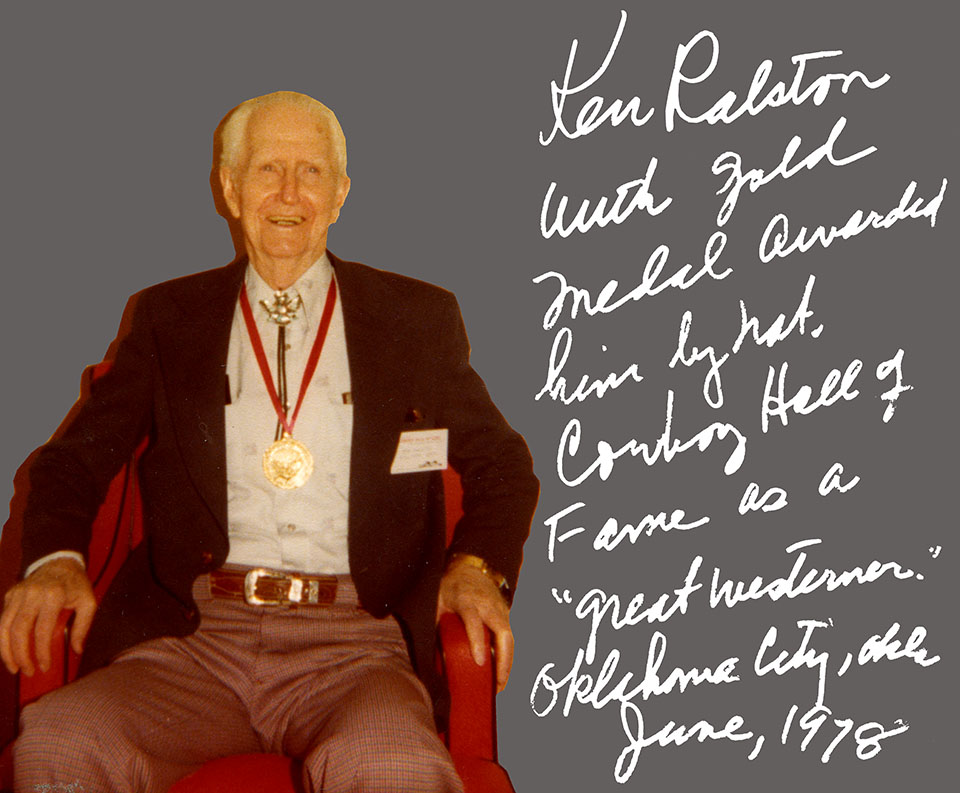 Ken Ralston
with Gold
medal awarded
him by Nat.
Cowboy Hall of
Fame as a
"great westerner."
Oklahoma City, Okla
June, 1978